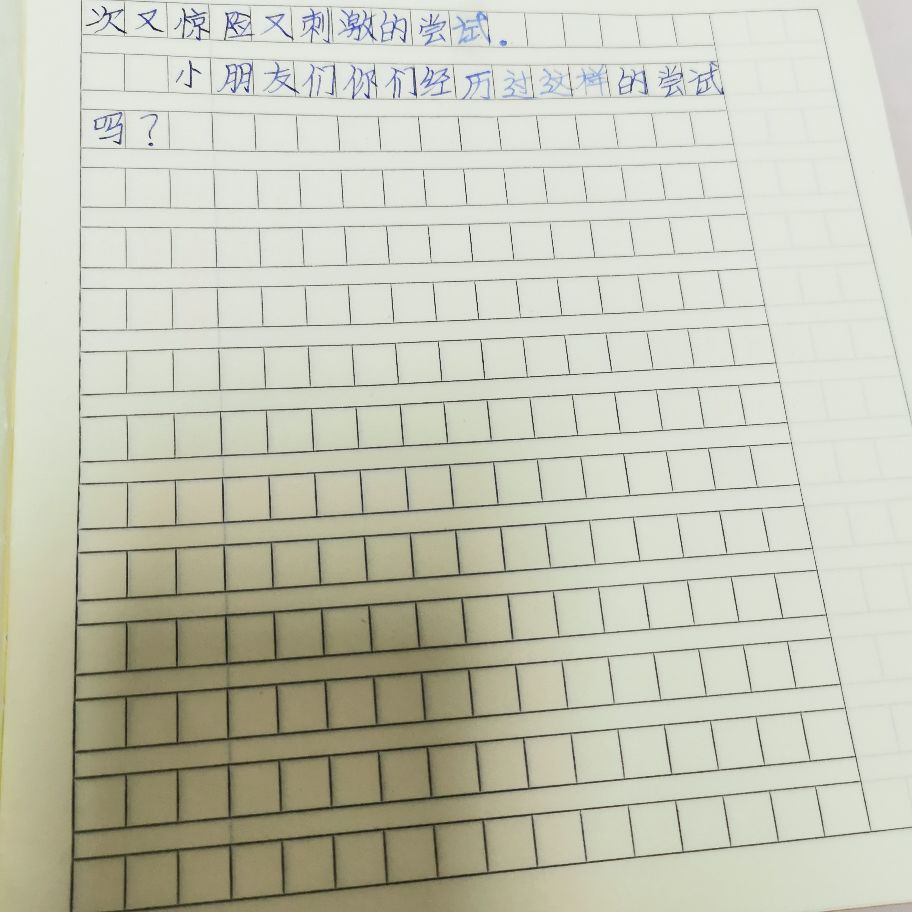 次又惊险又刺激的尝试.
小朋友们你们经历过这样的尝试
吗?